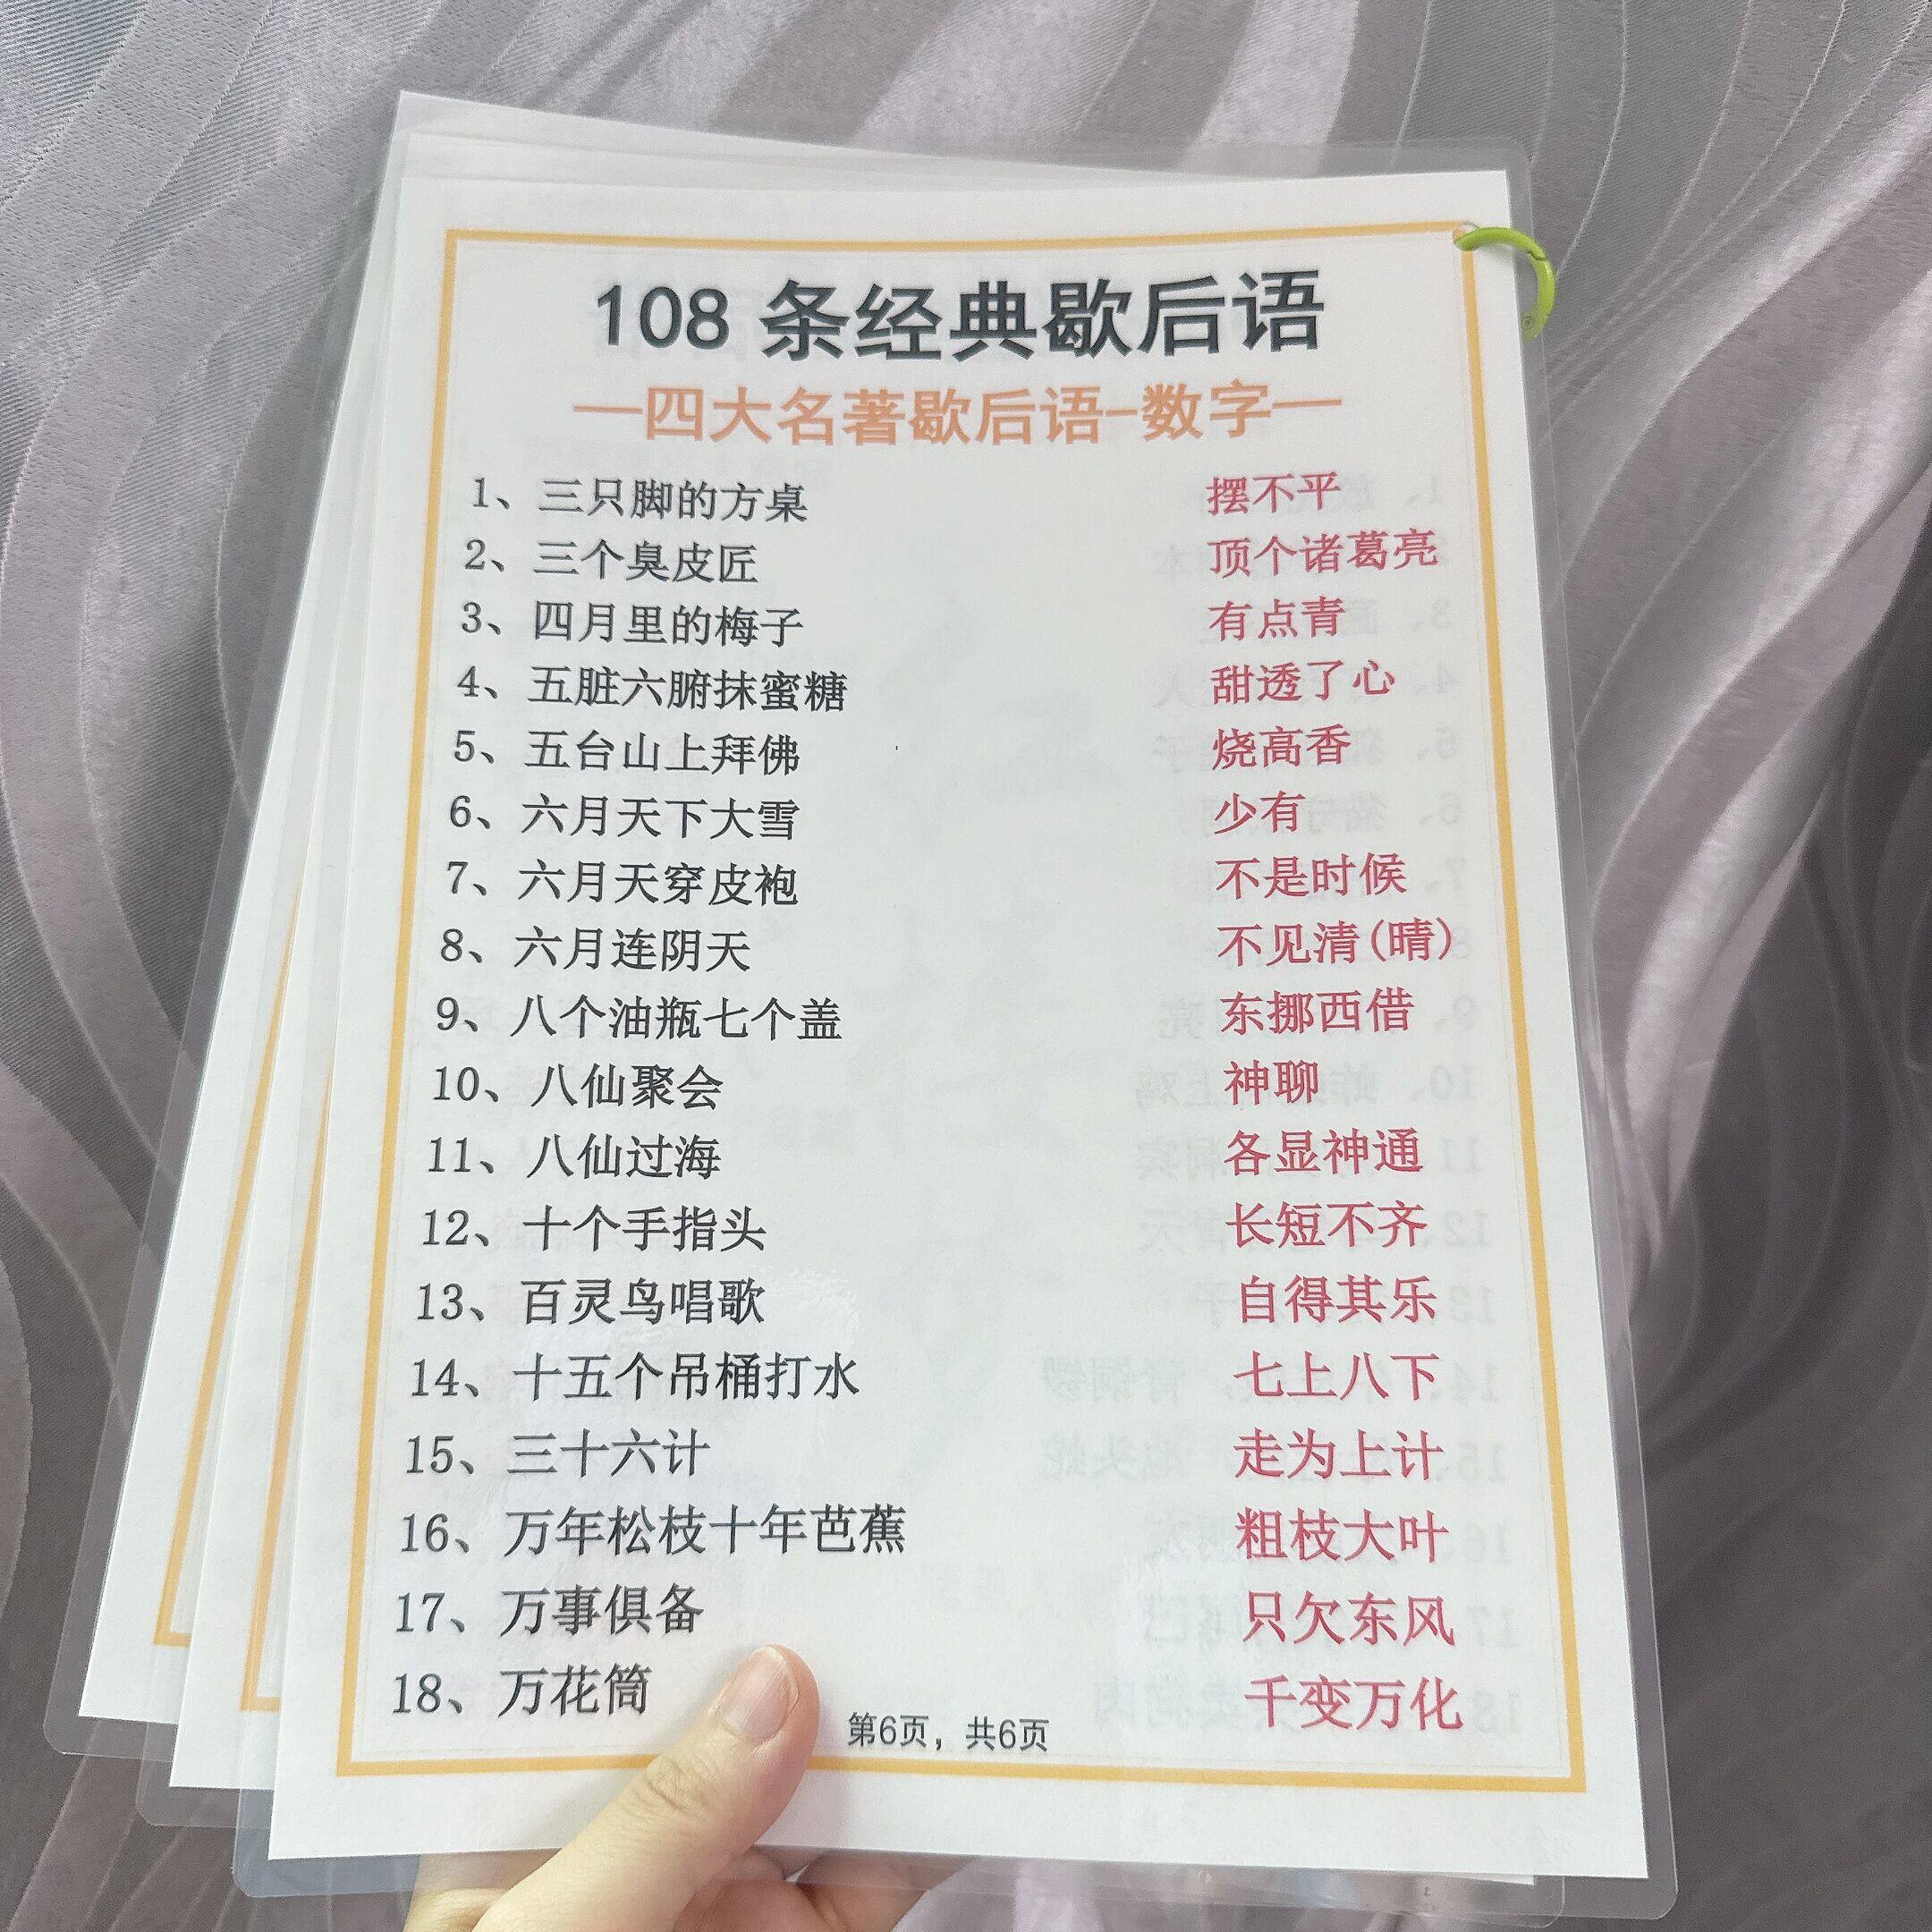 108 条经典歇后语
—四大名著歇后语-数字—
1、三只脚的方桌 摆不平
2、三个臭皮匠 顶个诸葛亮
3、四月里的梅子 有点青
4、五脏六腑抹蜜糖 甜透了心
5、五台山上拜佛 烧高香
6、六月天下大雪 少有
7、六月天穿皮袍 不是时候
8、六月连阴天 不见清(晴)
9、八个油瓶七个盖 东挪西借
10、八仙聚会 神聊
11、八仙过海 各显神通
12、十个手指头 长短不齐
13、百灵鸟唱歌 自得其乐
14、十五个吊桶打水 七上八下
15、三十六计 走为上计
16、万年松枝十年芭蕉 粗枝大叶
17、万事俱备 只欠东风
18、万花筒 千变万化
第6页，共6页